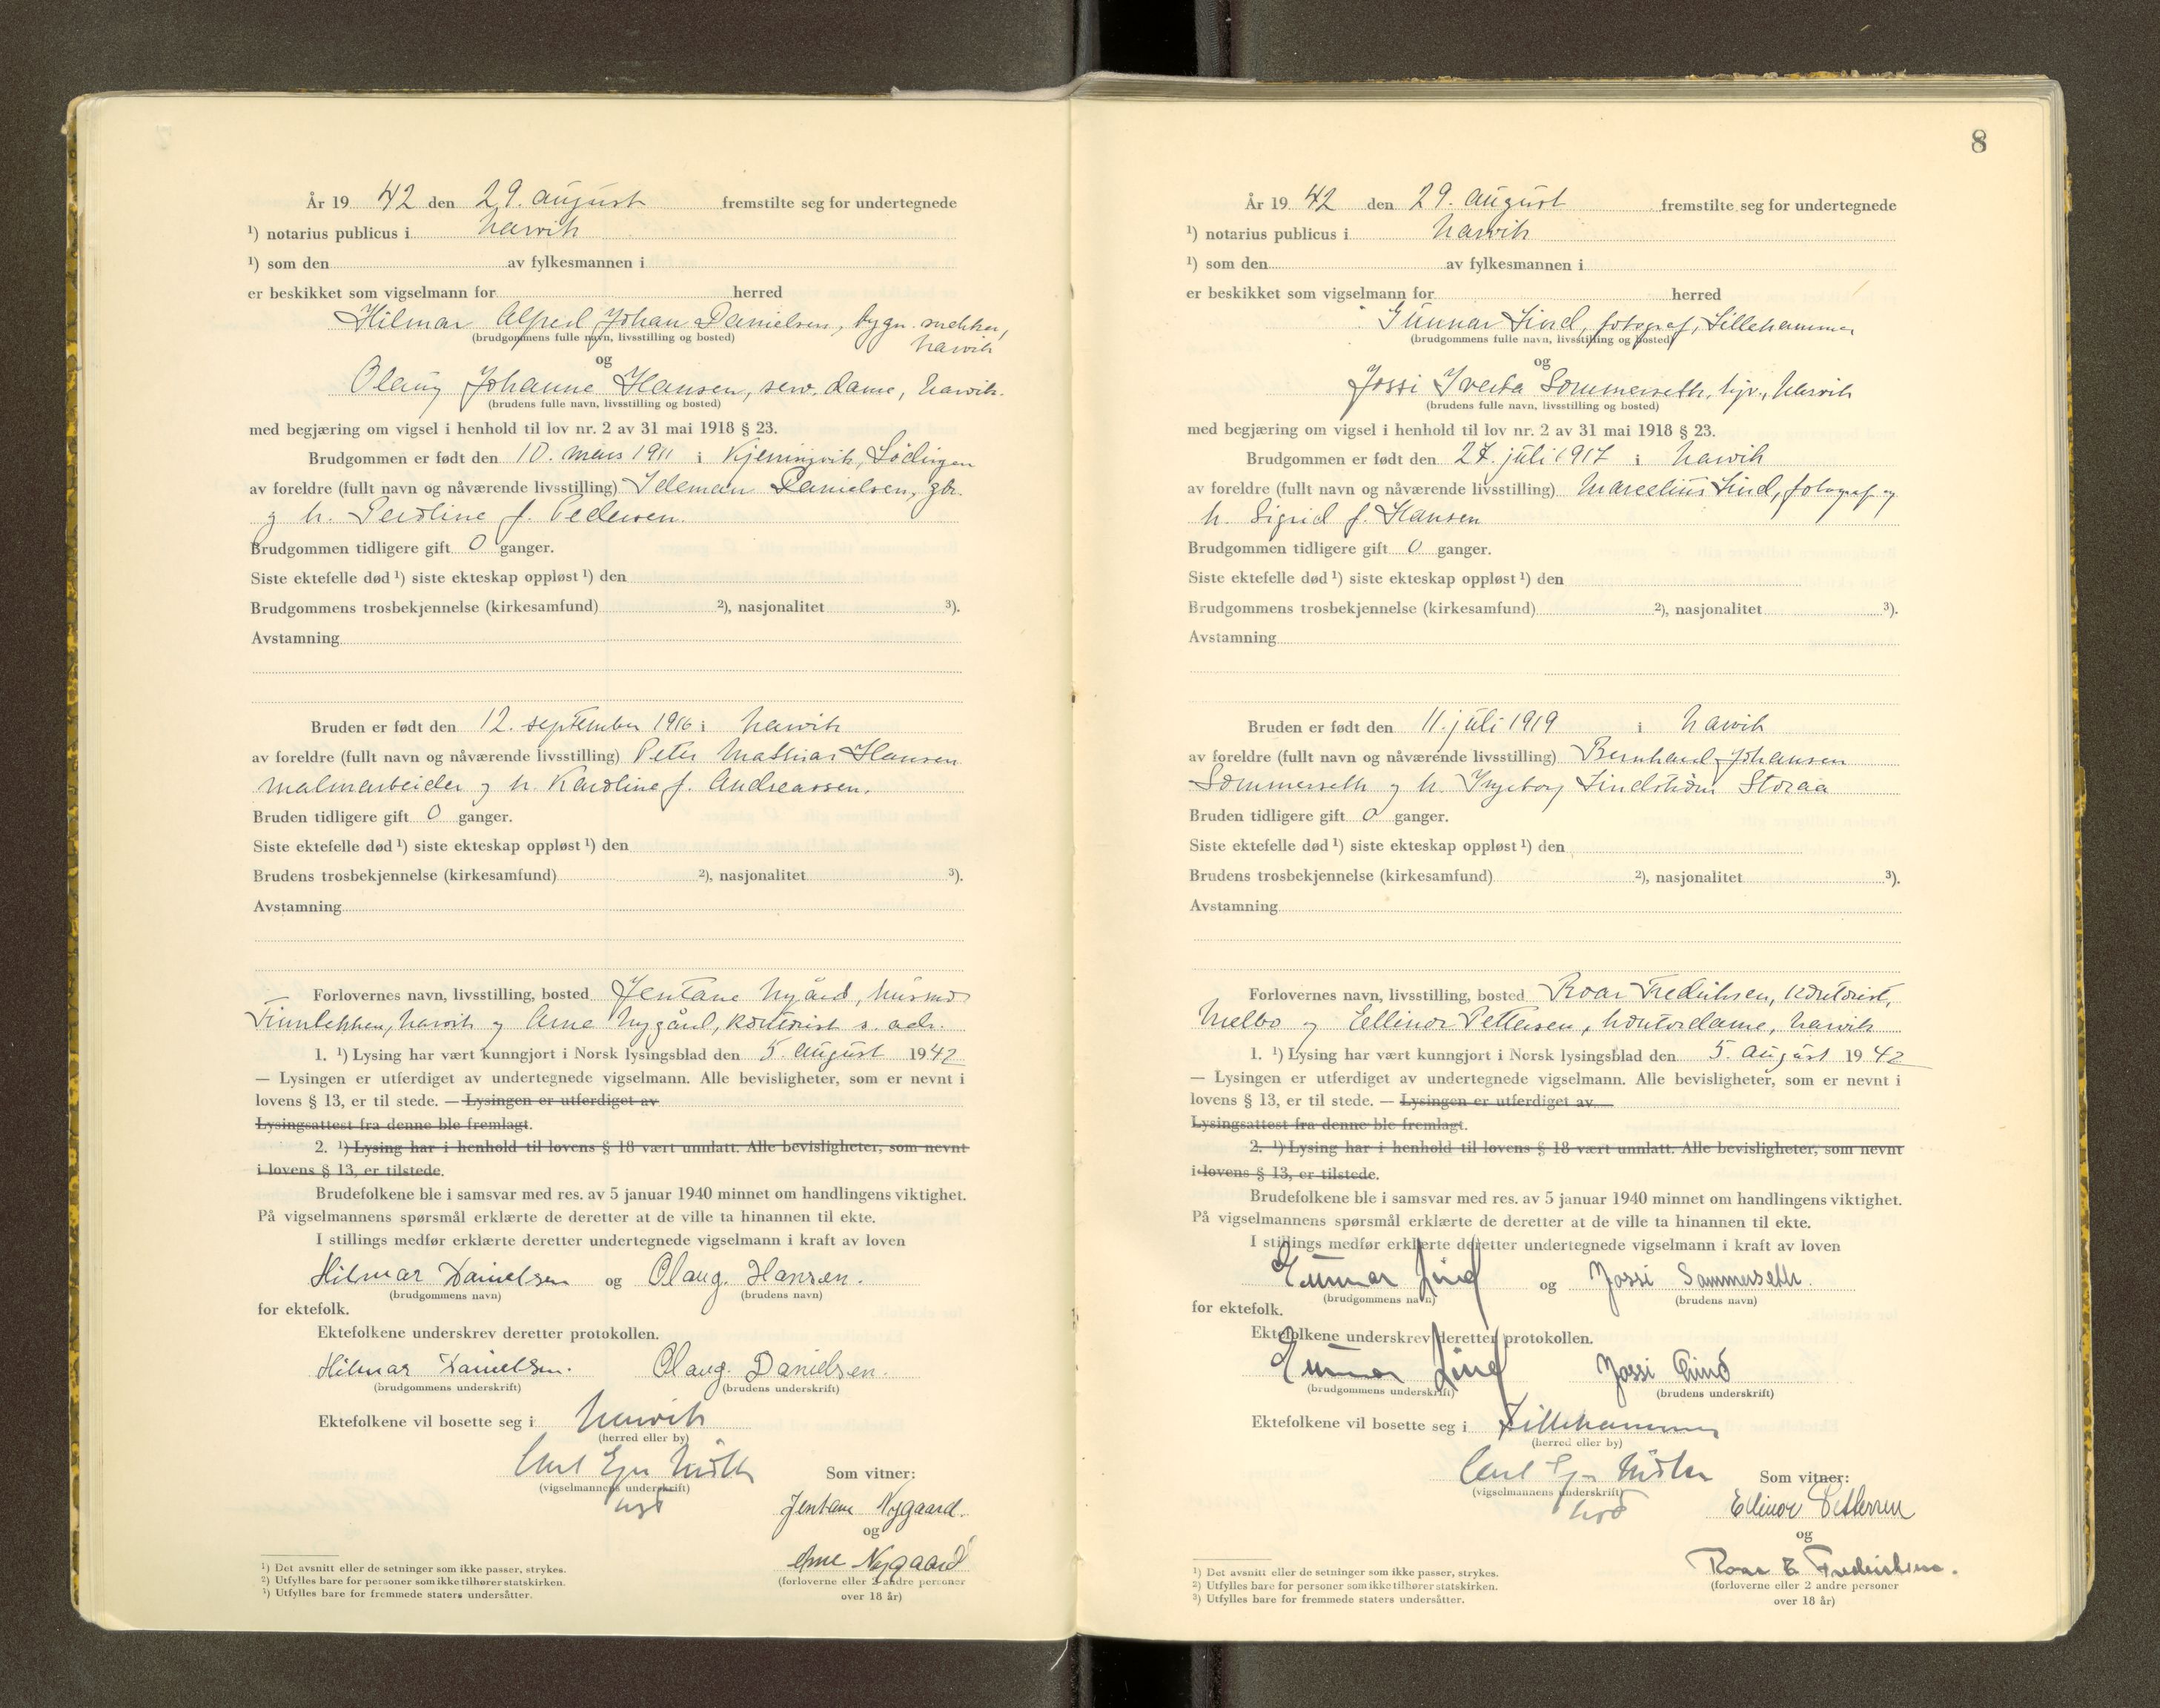 År 19 42 den 29. august fremstilte seg for undertegnede
¹) notarius publicus i Narvik
¹) som den av fylkesmannen i
er beskikket som vigselmann for herred
Hilmar Alfred Johan Danielsen, bygn. snekker,
Narvik
(brudgommens fulle navn, livsstilling og bosted)
og
Olaug Johanne Hansen, serv. dame, Narvik.
(brudens fulle navn, livsstilling og bosted)
med begjæring om vigsel i henhold til lov nr. 2 av 31 mai 1918 § 23.
Brudgommen er født den 10. mars 1911 i Lödingen
av foreldre (fullt navn og nåværende livsstilling) Danielsen, gbr.
og h. f. Pedersen.
Brudgommen tidligere gift 0 ganger.
Siste ektefelle død ¹) siste ekteskap oppløst ¹) den
Brudgommens trosbekjennelse (kirkesamfund) ²), nasjonalitet ³).
Avstamning
Bruden er født den 12. september 1916 i Narvik
av foreldre (fullt navn og nåværende livsstilling) Peter Mathias Hansen
malmarbeider og h. Karoline f. Andreassen.
Bruden tidligere gift 0 ganger.
Siste ektefelle død ¹) siste ekteskap oppløst ¹) den
Brudens trosbekjennelse (kirkesamfund) ²), nasjonalitet ³).
Avstamning
Forlovernes navn, livsstilling, bosted Jentane Nygård, husmor
Narvik og Arne Nygård, kontorist s. adr.
1. ¹) Lysing har vært kunngjort i Norsk lysingsblad den 5. august 1942
— Lysingen er utferdiget av undertegnede vigselmann. Alle bevisligheter, som er nevnt i
lovens § 13, er til stede. — Lysingen er utferdiget av
Lysingsattest fra denne ble fremlagt.
2. ¹) Lysing har i henhold til lovens § 18 vært unnlatt. Alle bevisligheter, som nevnt
i lovens § 13, er tilstede.
Brudefolkene ble i samsvar med res. av 5 januar 1940 minnet om handlingens viktighet.
På vigselmannens spørsmål erklærte de deretter at de ville ta hinannen til ekte.
I stillings medfør erklærte deretter undertegnede vigselmann i kraft av loven
Hilmar Danielsen og Olaug. Hansen.
(brudgommens navn) (brudens navn)
for ektefolk.
Ektefolkene underskrev deretter protokollen.
Hilmar Danielsen. Olaug. Danielsen.
(brudgommens underskrift) (brudens underskrift)
Ektefolkene vil bosette seg i Narvik
(herred eller by)
Carl Som vitner:
(vigselmannens underskrift)
Jentane Nygaard.
og
Arne Nygaard
(forloverne eller 2 andre personer
over 18 år)
¹) Det avsnitt eller de setninger som ikke passer, strykes.
²) Utfylles bare for personer som ikke tilhører statskirken.
³) Utfylles bare for fremmede staters undersåtter.
8
År 19 42 den 29. august fremstilte seg for undertegnede
¹) notarius publicus i Narvik
¹) som den av fylkesmannen i
er beskikket som vigselmann for herred
Gunnar Lind, fotograf, Lillehammer
(brudgommens fulle navn, livsstilling og bosted)
og
Jossi Sommerseth, Narvik
(brudens fulle navn, livsstilling og bosted)
med begjæring om vigsel i henhold til lov nr. 2 av 31 mai 1918 § 23.
Brudgommen er født den 27. juli 1917 i Narvik
av foreldre (fullt navn og nåværende livsstilling) Marcelius Lind, fotograf og
h. Sigrid f. Hansen
Brudgommen tidligere gift 0 ganger.
Siste ektefelle død ¹) siste ekteskap oppløst ¹) den
Brudgommens trosbekjennelse (kirkesamfund) ²), nasjonalitet ³).
Avstamning
Bruden er født den 11. juli 1919 i Narvik
av foreldre (fullt navn og nåværende livsstilling) Bernhard Johansen
Sommerseth og h. Ingeborg Lindström Storaa
Bruden tidligere gift 0 ganger.
Siste ektefelle død ¹) siste ekteskap oppløst ¹) den
Brudens trosbekjennelse (kirkesamfund) ²), nasjonalitet ³).
Avstamning
Forlovernes navn, livsstilling, bosted Roar Fredriksen, kontorist,
Melbo og Ellinor Pettersen, kontordame, Narvik
1. ¹) Lysing har vært kunngjort i Norsk lysingsblad den 5. august 1942
— Lysingen er utferdiget av undertegnede vigselmann. Alle bevisligheter, som er nevnt i
lovens § 13, er til stede. — Lysingen er utferdiget av
Lysingsattest fra denne ble fremlagt.
2. ¹) Lysing har i henhold til lovens § 18 vært unnlatt. Alle bevisligheter, som nevnt
i lovens § 13, er tilstede.
Brudefolkene ble i samsvar med res. av 5 januar 1940 minnet om handlingens viktighet.
På vigselmannens spørsmål erklærte de deretter at de ville ta hinannen til ekte.
I stillings medfør erklærte deretter undertegnede vigselmann i kraft av loven
Gunnar Lind og Jossi Sommerseth.
(brudgommens navn) (brudens navn)
for ektefolk.
Ektefolkene underskrev deretter protokollen.
Gunnar Lind Jossi Lind
(brudgommens underskrift) (brudens underskrift)
Ektefolkene vil bosette seg i Lillehammer
(herred eller by)
Carl Som vitner:
(vigselmannens underskrift)
Ellinor Pettersen
og
Roar E Fredriksen.
(forloverne eller 2 andre personer
over 18 år)
¹) Det avsnitt eller de setninger som ikke passer, strykes.
²) Utfylles bare for personer som ikke tilhører statskirken.
³) Utfylles bare for fremmede staters undersåtter.